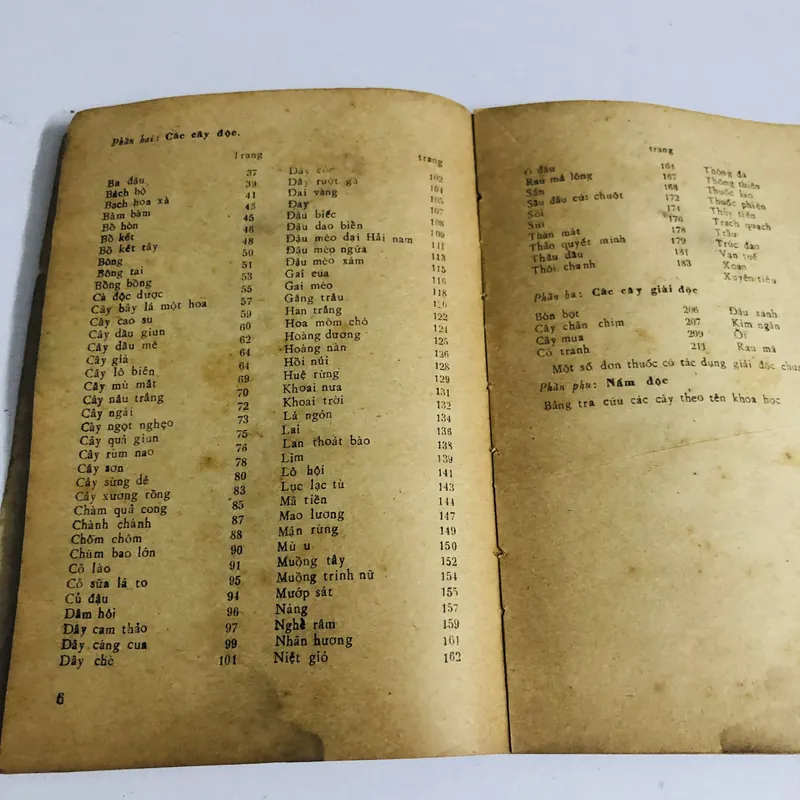 Phần hai: Các cây độc.
Trang
Ba đậu 37
Bách bộ 39
Bạch hoa xà 41
Bàm bàm 43
Bồ hòn 45
Bồ kết 46
Bồ kết tây 48
Bông 50
Bông tai 51
Bồng bồng 53
Cà độc dược 55
Cây bảy lá một hoa 57
Cây cao su 59
Cây dầu giun 60
Cây dầu mè 62
Cây giá 64
Cây lô biên 64
Cây mù mắt 69
Cây nâu trắng 70
Cây ngái 72
Cây ngọt nghẹo 73
Cây quả giun 75
Cây rùm nao 76
Cây sơn 78
Cây sừng dê 80
Cây xương rồng 83
Chàm quả cong 85
Chành chành 87
Chôm chôm 88
Chùm bao lớn 90
Cỏ lào 91
Cỏ sữa lá to 95
Củ đậu 94
Dâm hôi 96
Dây cam thảo 97
Dây càng cua 99
Dây chè 101
trang
Dây 102
Dây ruột gà 104
Đai vàng 105
Đay 107
Đậu biếc 108
Đậu dao biển 109
Đậu mèo dại Hải nam 111
Đậu mèo ngứa 113
Đậu mèo xám 115
Gai cua 116
Gai mèo 118
Găng trâu 120
Han trắng 122
Hoa mõm chó 124
Hoàng dương 125
Hoàng nàn 126
Hồi núi 128
Huệ rừng 129
Khoai nưa 131
Khoai trời 132
Lá ngón 134
Lai 136
Lan thoát bào 138
Lim 139
Lô hội 141
Lục lạc tù 143
Mã tiền 144
Mao lương 147
Mận rừng 149
Mù u 150
Muồng tây 152
Muồng trinh nữ 154
Mướp sát 155
Náng 157
Nghề răm 159
Nhãn hương 161
Niệt gió 162
6
trang
Ô đầu 164
Rau má lông 167
Sắn 168
Sầu đâu cứt chuột 172
Sòi 174
Sui 176
Thàn mát 178
Thảo quyết minh 179
Thầu dầu 181
Thôi chanh 183
Thông đỏ
Thông thiên
Thuốc lào
Thuốc phiện
Thủy tiên
Trạch quạch
Trẩu
Trúc đào
Vạn tuế
Xoan
Xuyên tiêu
Phần ba: Các cây giải độc
Bòn bọt 206
Cây chân chim 207
Cây mua 209
Cỏ tranh 211
Đậu xanh
Kim ngân
Ổi
Rau má
Một số đơn thuốc có tác dụng giải độc
Phần phụ: Nấm độc
Bảng tra cứu các cây theo tên khoa học